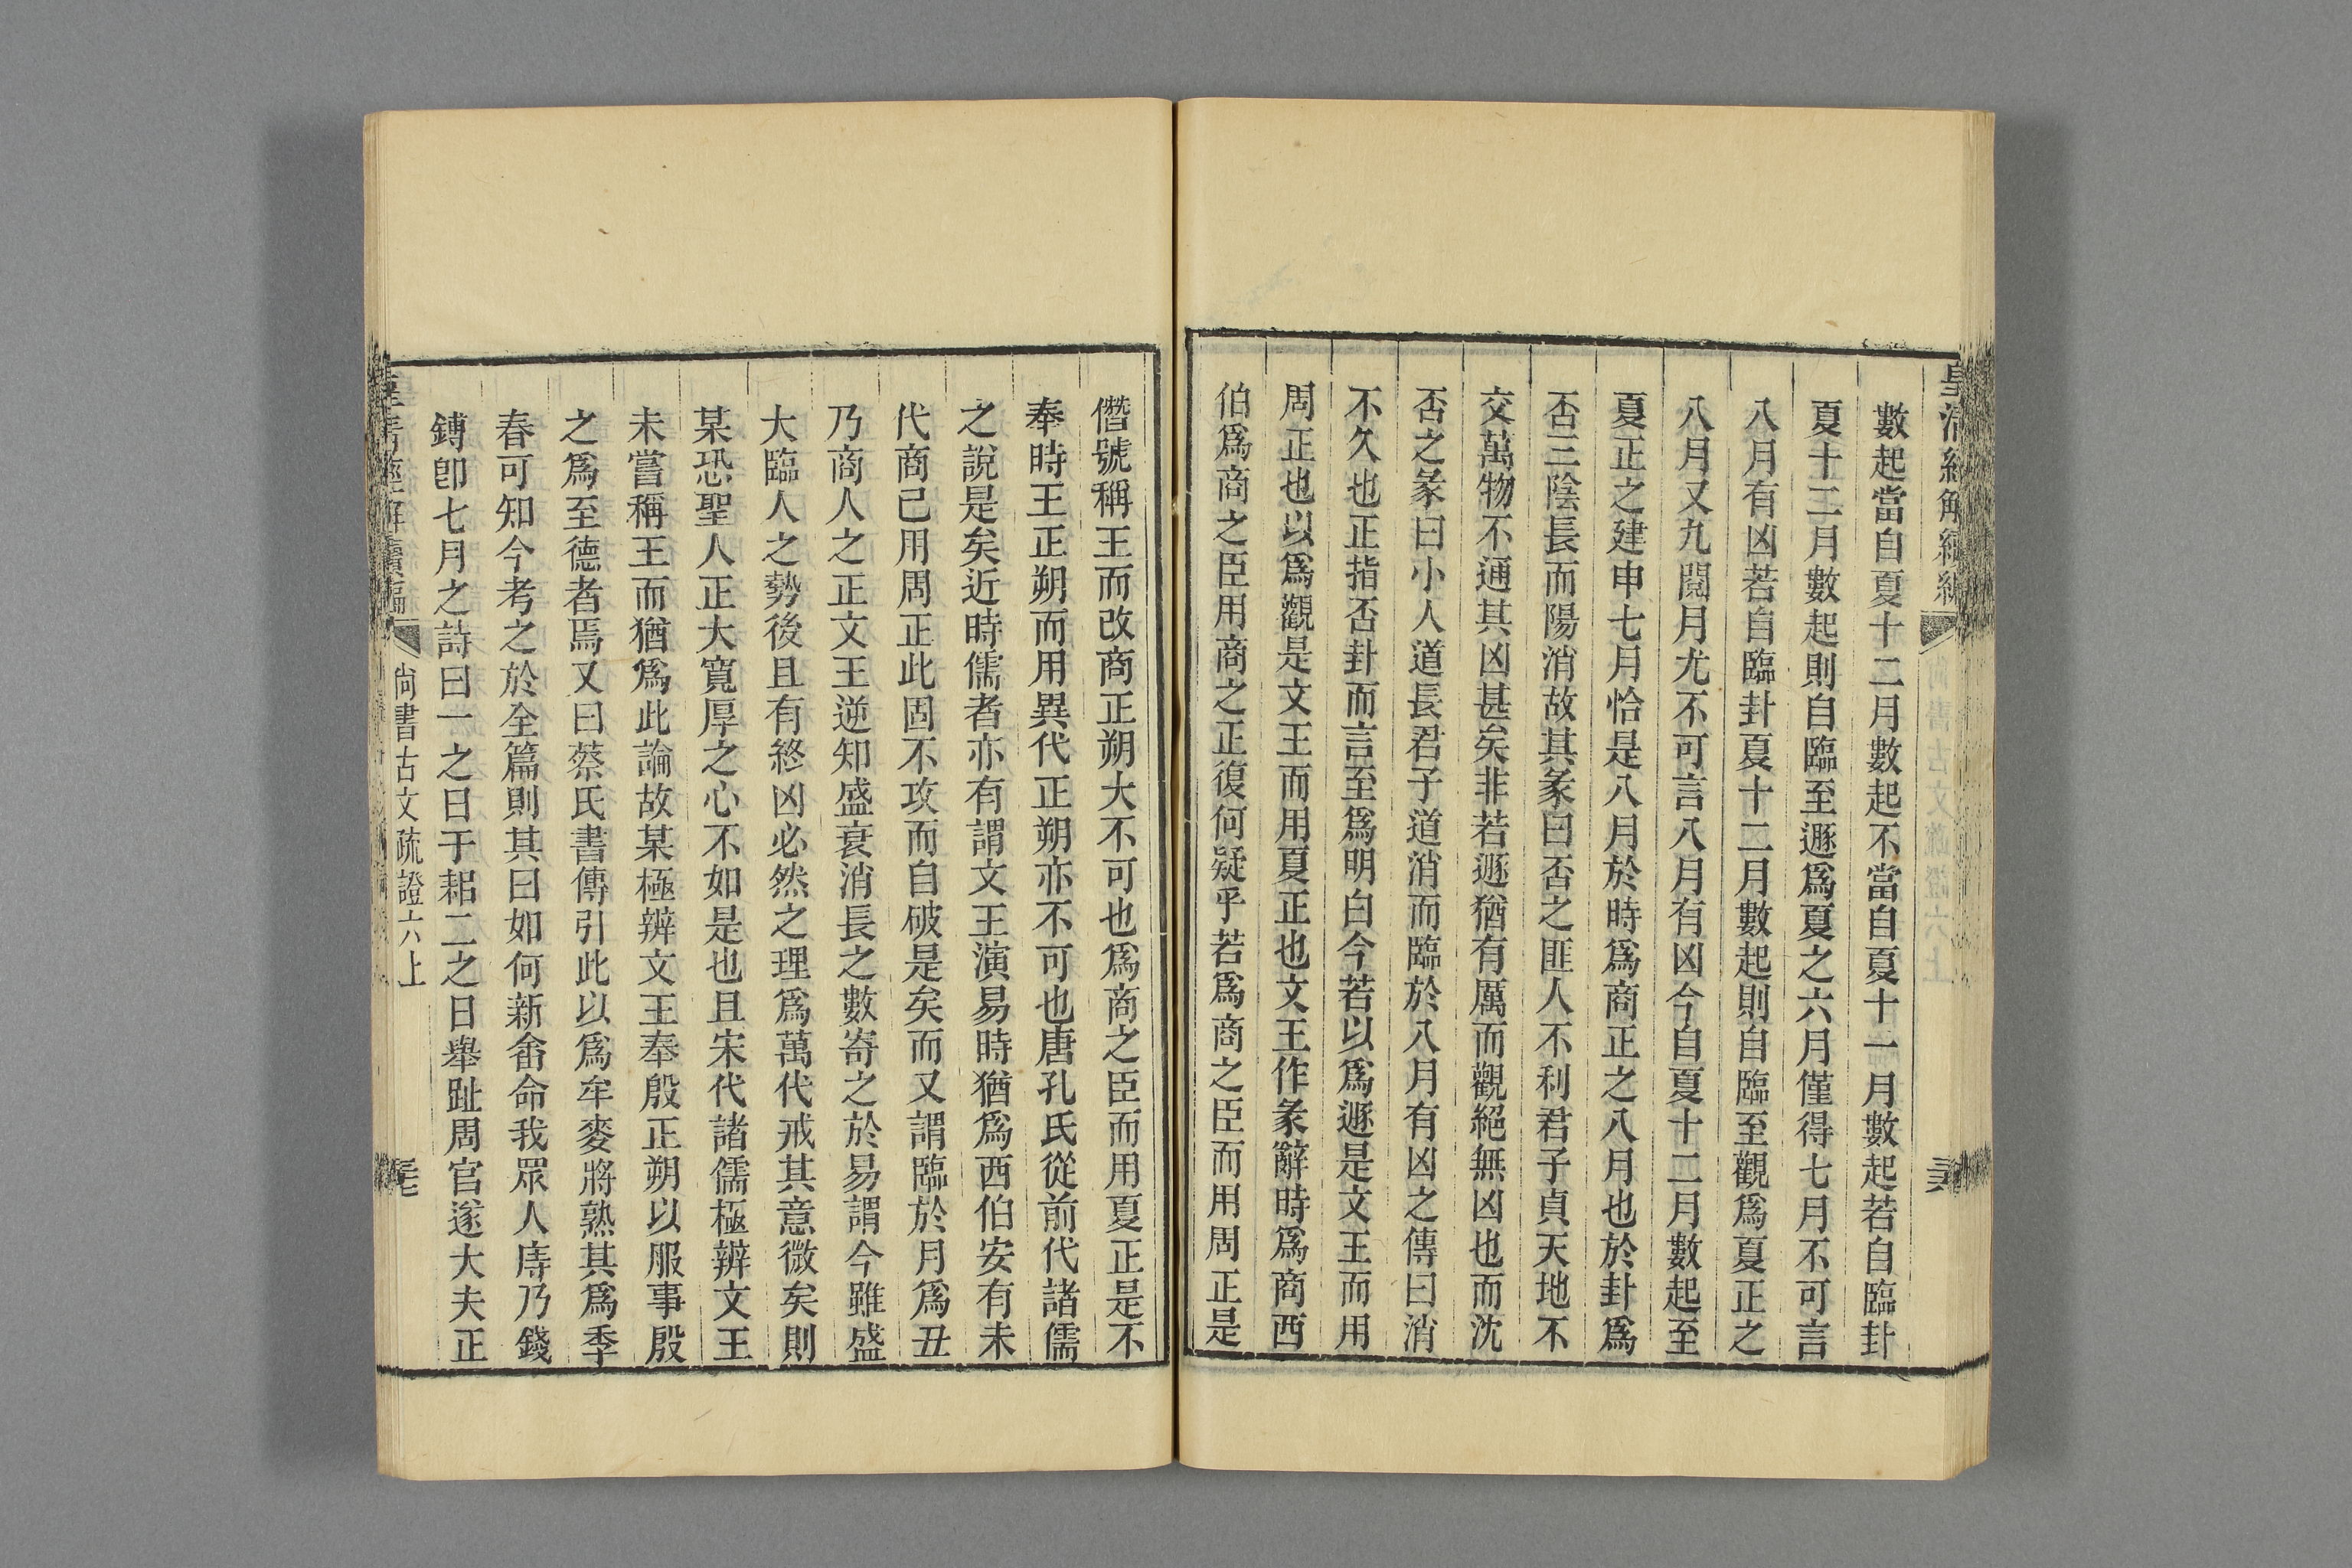 數起當自夏十二月數起不當自夏十一月數起若自臨卦
夏十二月數起則自臨至遯爲夏之六月僅得七月不可言
八月有凶若自臨卦夏十二月數起則自臨至觀爲夏正之
八月又九閱月尤不可言八月有凶今自夏十二月數起至
夏正之建申七月恰是八月於時爲商正之八月也於卦爲
否三陰長而陽消故其彖曰否之匪人不利君子貞天地不
交萬物不通其凶甚矣非若遯猶有厲而觀絕無凶也而沈
否之彖曰小人道長君子道消而臨於八月有凶之傳曰消
不久也正指否卦而言至爲明白今若以爲遯是文王而用
周正也以爲觀是文王而用夏正也文王作彖辭時爲商西
伯爲商之臣用商之正復何疑乎若爲商之臣而用周正是
僭號稱王而改商正朔大不可也爲商之臣而用夏正是不
奉時王正朔而用異代正朔亦不可也唐孔氏從前代諸儒
之說是矣近時儒者亦有謂文王演易時猶爲西伯安有未
代商已用周正此固不攻而自破是矣而又謂臨於月爲丑
乃商人之正文王逆知盛衰消長之數寄之於易謂今雖盛
大臨人之勢後且有終凶必然之理爲萬代戒其意微矣則
某恐聖人正大寬厚之心不如是也且宋代諸儒極辨文王
未嘗稱王而猶爲此論故某極辨文王奉殷正朔以服事殷
之爲至德者焉又曰蔡氏書傳引此以爲牟麥將熟其爲季
春可知今考之於全篇則其曰如何新畬命我眾人庤乃錢
鎛卽七月之詩曰一之日于耜二之日舉趾周官遂大夫正
皇清經解續編 尚書古文疏證六上